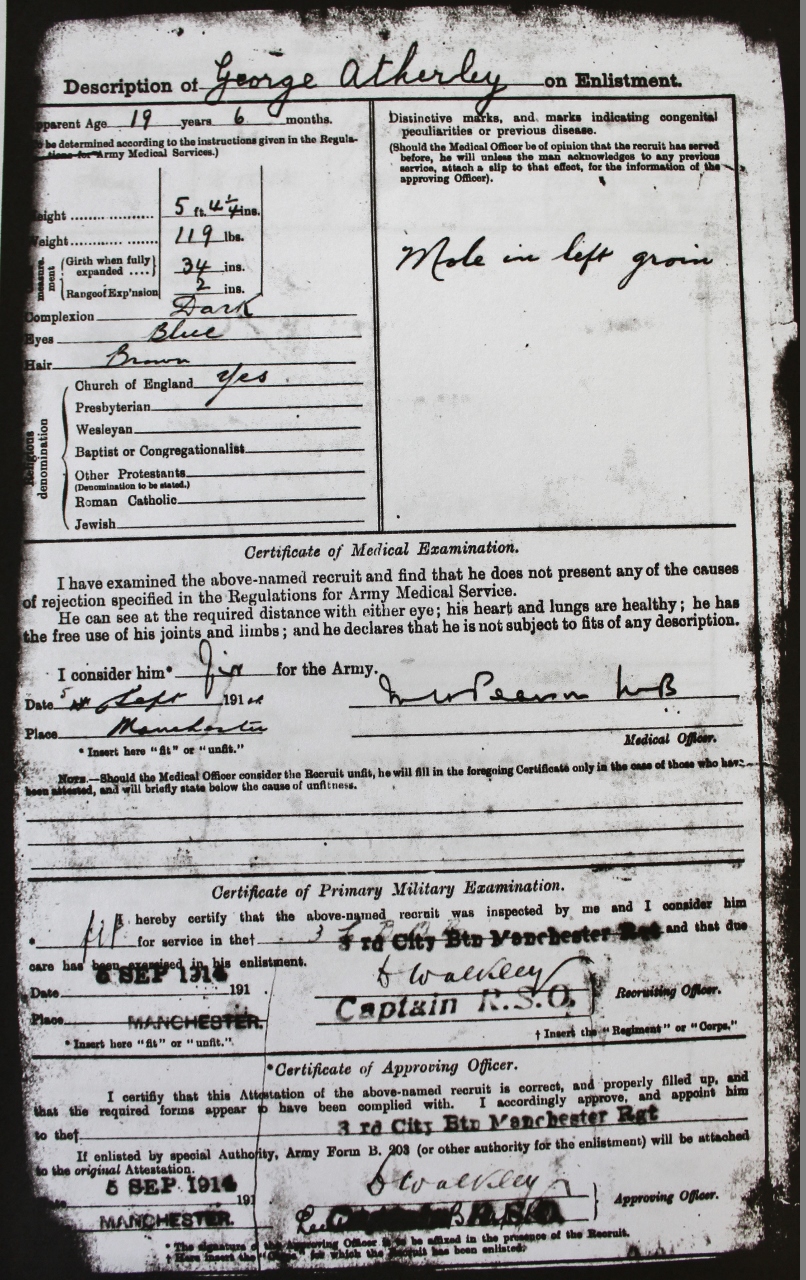 Description of George Atherley on Enlistment.
pparent Age 19 years 6 months.
be determined according to the instructions given in the Regula-
tions for Army Medical Services.)
eight 5 ft. 4 ins.
eight 119 lbs.
measure-
ment
Girth when fully
expanded .... 34 ins.
Range of Exp'nsion 2 ins.
Complexion Dark
Eyes Blue
Hair Brown
Religious
denomination
Church of England Yes
Presbyterian
Wesleyan
Baptist or Congregationalist
Other Protestants
(Denomination to be stated.)
Roman Catholic
Jewish
Distinctive marks, and marks indicating congenital
peculiarities or previous disease.
(Should the Medical Officer be of opinion that the recruit has served
before, he will unless the man acknowledges to any previous
service, attach a slip to that effect, for the information of the
approving Officer).
Mole in left groin
Certificate of Medical Examination.
I have examined the above-named recruit and find that he does not present any of the causes
of rejection specified in the Regulations for Army Medical Service.
He can see at the required distance with either eye; his heart and lungs are healthy; he has
the free use of his joints and limbs; and he declares that he is not subject to fits of any description.
I consider him* Fit for the Army.
Date 5 Sept 191
Place Manchester
Medical Officer.
* Insert here "fit" or "unfit."
NOTE.—Should the Medical Officer consider the Recruit unfit, he will fill in the foregoing Certificate only in the case of those who have
been attested, and will briefly state below the cause of unfitness.
Certificate of Primary Military Examination.
I hereby certify that the above-named recruit was inspected by me and I consider him
* fit for service in the† 3 rd City Btn Manchester Rgt and that due
care has been exercised in his enlistment.
SEP 1914
Date 191
D Walkley
Captain R.S.O. Recruiting Officer.
Place MANCHESTER.
* Insert here "fit" or "unfit." † Insert the "Regiment" or "Corps."
*Certificate of Approving Officer.
I certify that this Attestation of the above-named recruit is correct, and properly filled up, and
that the required forms appear to have been complied with. I accordingly approve, and appoint him
to the† 3 rd City Btn Manchester Rgt
If enlisted by special Authority, Army Form B. 203 (or other authority for the enlistment) will be attached
to the original Attestation.
5 SEP 1914
191
D Walkley
Approving Officer.
MANCHESTER.
* The signature of the Approving Officer is to be affixed in the presence of the Recruit.
† Here insert the "Corps" for which the Recruit has been enlisted.